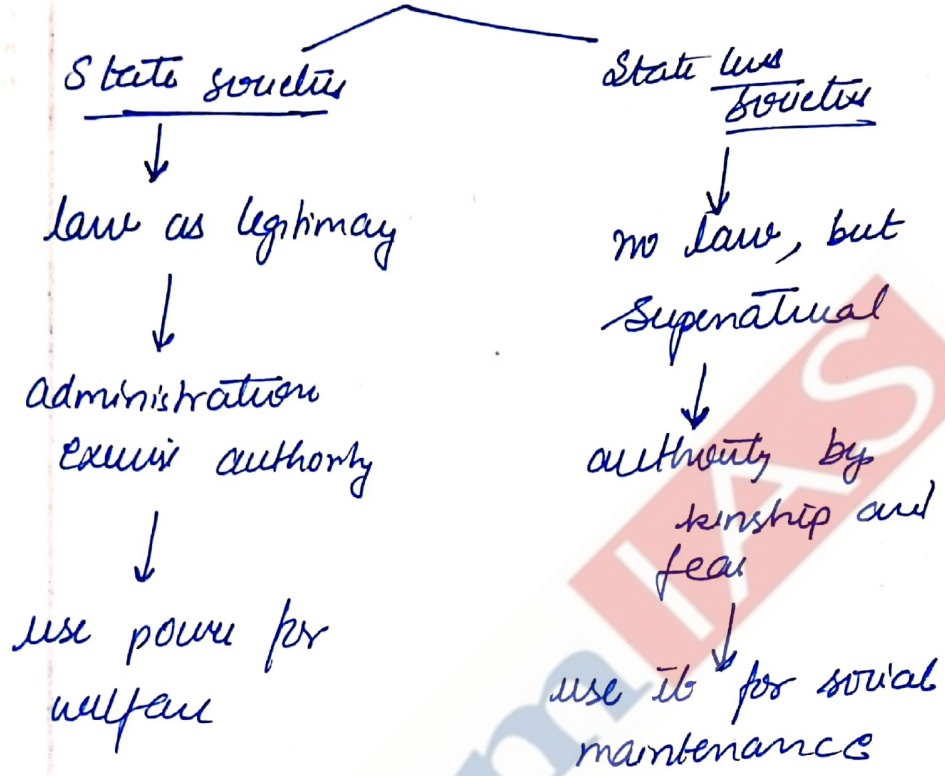 State societies
law as legitimacy
administration
exercise authority
use power for
welfare
State less
societies
no law, but
supernatural
authority by
kinship and
fear
use it for social
maintenance
mIAS